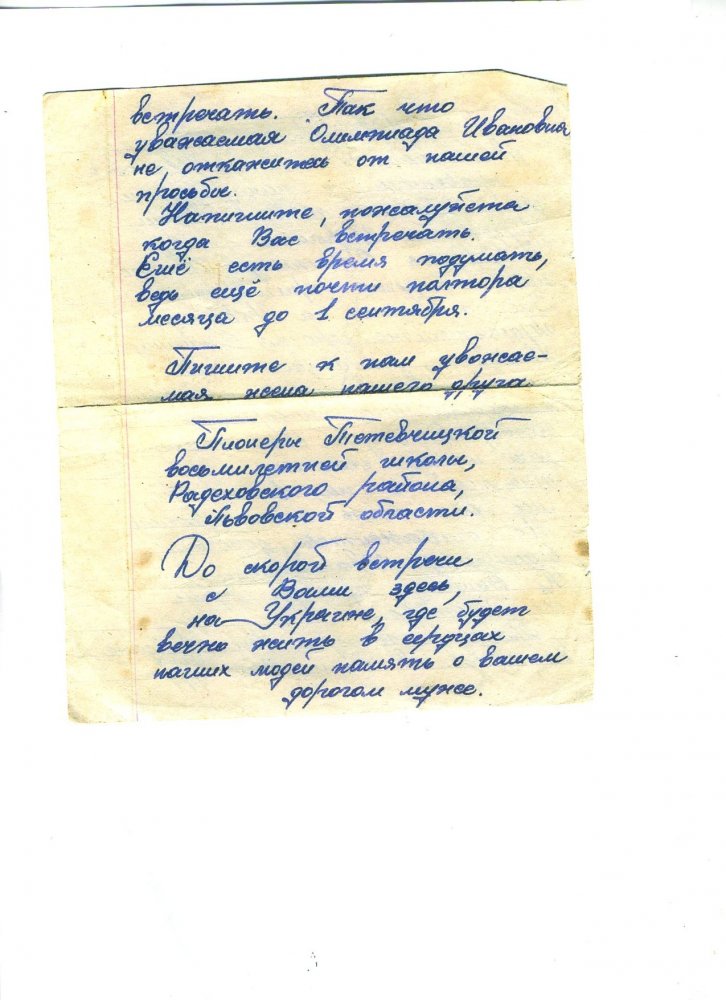 встречать. Так что
уважаемая Олимпиада Ивановна
не откажитесь от нашей
просьбы.
Напишите, пожалуйста
когда Вас встречать.
Ещё есть время подумать,
ведь ещё почти полтора
месяца до 1 сентября.
Пишите к нам уважае-
мая жена нашего друга.
Пионеры Тетевчицкой
восьмилетней школы,
Радеховского района,
Львовской области.
До скорой встречи
с Вами здесь,
на Украине, где будет
вечно жить в сердцах
наших людей память о вашем
дорогом муже.